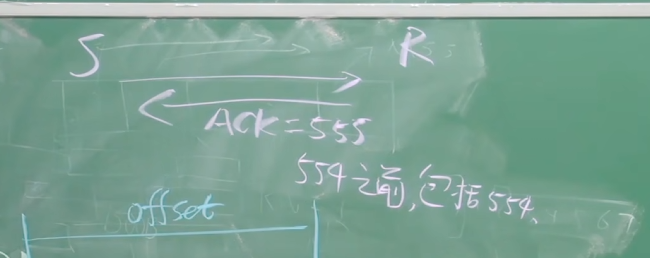 S R
ACK=555
554之前,包括554.
offset